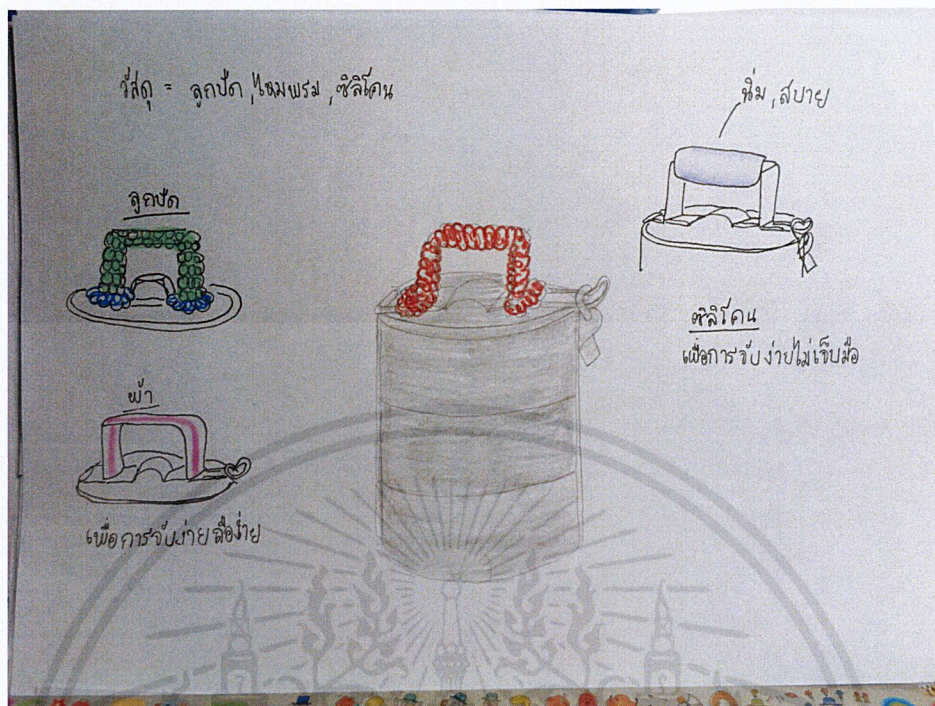 วัสดุ = ลูกปัด, ไหมพรม, ซิลิโคน
นิ่ม, สบาย
ลูกปัด
ซิลิโคน
เพื่อการจับง่ายไม่เจ็บมือ
ผ้า
เพื่อการจับง่ายถือง่าย